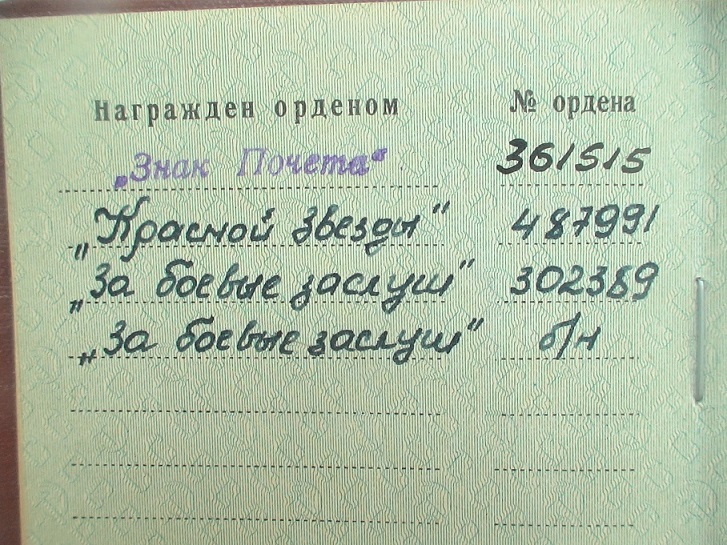 Награжден орденом № ордена
„Знак Почета“ 361515
„Красной звезды" 487991
„За боевые заслуги" 302389
„За боевые заслуги" б/н